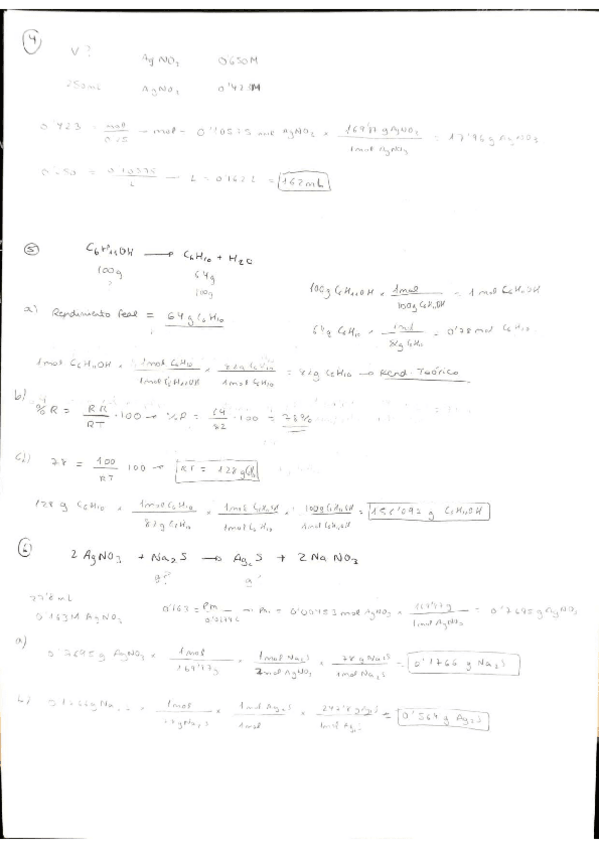 4
V ?
AgNO3 0'650M
250mL AgNO3 0'423M
0'423 = mol / 0'25 → mol = 0'10575 mol AgNO3 × 169'87 g AgNO3 / 1mol AgNO3 = 17'96 g AgNO3
0'650 = 0'10575 / L → L = 0'162 L = 162 mL
5
C6H11OH → C6H10 + H2O
100g 64g
? 100g
100g C6H11OH × 1mol / 100g C6H11OH = 1 mol C6H11OH
a) Rendimiento Real = 64g C6H10
64g C6H10 × 1mol / 82g C6H10 = 0'78 mol C6H10
1mol C6H11OH × 1mol C6H10 / 1mol C6H11OH × 82g C6H10 / 1mol C6H10 = 82g C6H10 → Rend. Teórico
b) % R = RR / RT · 100 → %R = 64 / 82 · 100 = 78%
c) 78 = 100 / RT · 100 → RT = 128 g
128 g C6H10 × 1mol C6H10 / 82g C6H10 × 1mol C6H11OH / 1mol C6H10 × 100g C6H11OH / 1mol C6H11OH = g C6H11OH
6
2 AgNO3 + Na2S → Ag2S + 2 NaNO3
g? g?
mL
0'163M AgNO3
0'163 = → = 0'00453 mol AgNO3 × 169'87g / 1mol AgNO3 = 0'7695 g AgNO3
a)
0'7695 g AgNO3 × 1mol / 169'87g × 1mol Na2S / 2mol AgNO3 × 78 g Na2S / 1mol Na2S = 0'1766 g Na2S
b) 0'1766g Na2S × 1mol / 78 g Na2S × 1mol Ag2S / 1mol × 247'8 g Ag2S / 1mol Ag2S = 0'564 g Ag2S